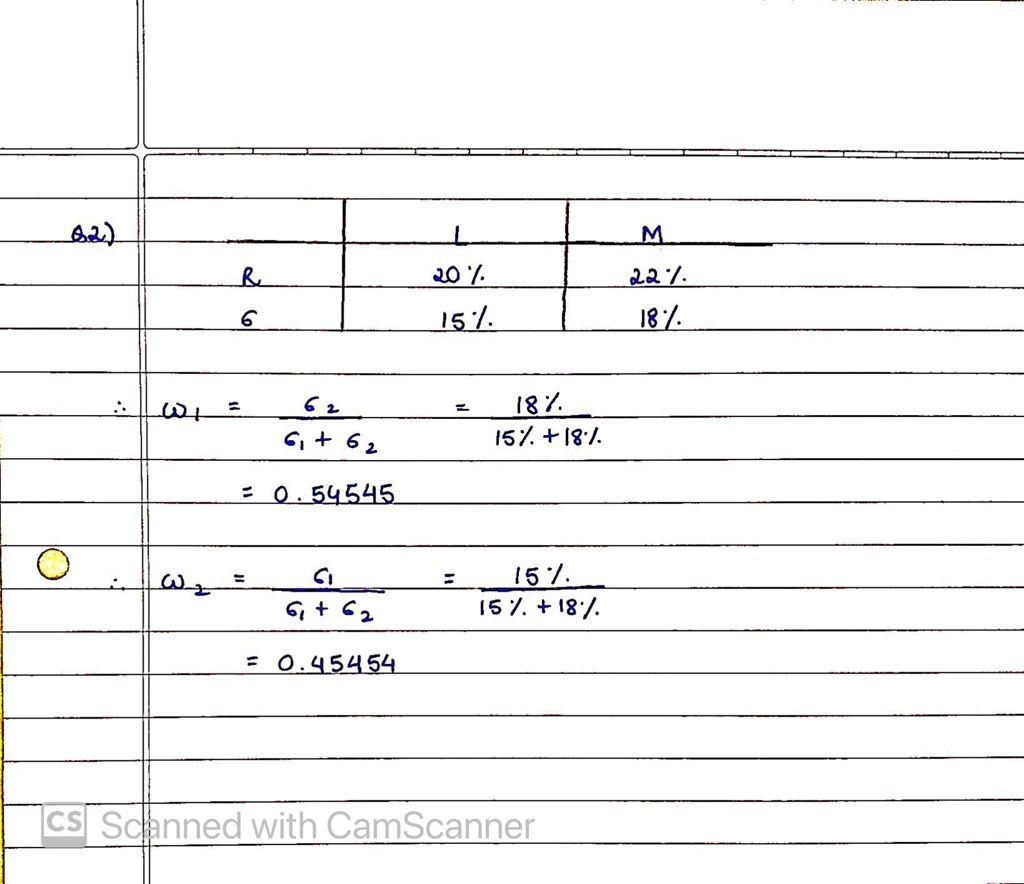 Q2) L M
R 20% 22%
σ 15% 18%
∴ ω₁ = σ₂ / σ₁ + σ₂ = 18% / 15% + 18%
= 0.54545
∴ ω₂ = σ₁ / σ₁ + σ₂ = 15% / 15% + 18%
= 0.45454
CS Scanned with CamScanner